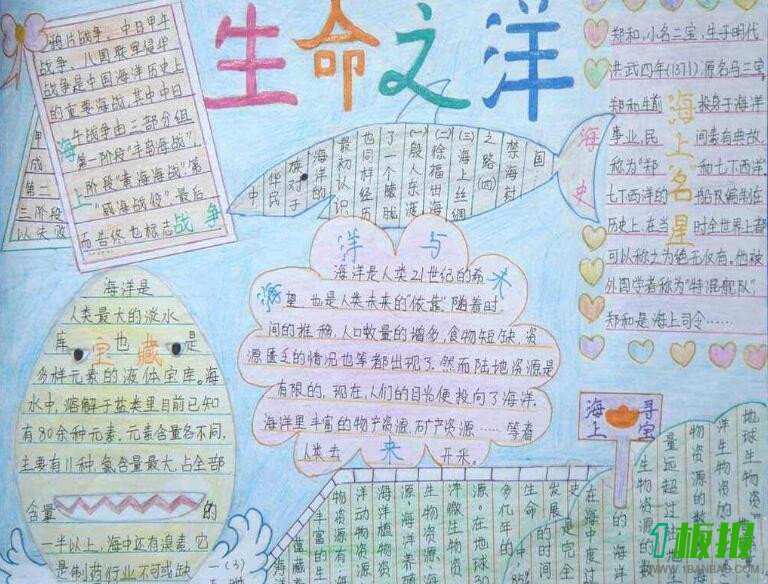 生命之洋
鸦片战争、中日甲午
战争、八国联军侵华
战争是中国海洋历史上
的重要海战。其中中日
午战争由三部分组
第一阶段"丰岛海战"第
阶段"黄海海战"
"威海战役"最后
而告终.也标志
海上战争
甲
成
第二
三阶段
以失败
中
华民
族对于
海洋的
最初认识
也同样经历
了一个朦胧
(一)殷人东渡
(二)徐福出海
(三)海上丝绸
之路(四)
禁海封
国…
海史
郑和,小名三宝,生于明代
洪武四年(1371)源名马三宝,
郑和生前 投身于海洋
事业,民 间素有典故,
称为"郑 和七下西洋.
七下西洋的 船队编制在
历史上,在当 时全世界上都
可以称之为绝无仅有。他被
外国学者称为"特混舰队"
郑和是海上司令……
海上名星
海洋是
人类最大的淡水
库 也 是
多样元素的液体宝库。海
水中,溶解于盐类里目前已知
有80余种元素,元素含量各不同,
主要有11种,氯含量最大,占全部
含量 的
一半以上,海中还有溴素,它
是制药行业不可或缺
宝藏
海洋与未来
海洋是人类21世纪的希
望 也是人类未来的"依靠"随着时
间的推移,人口数量的增多,食物短缺,资
源匮乏的情况也等都出现了.然而陆地资源是
有限的,现在,人们的目光便投向了海洋.
海洋里丰富的物产资源,矿产资源……等着
人类去 开采。
海上寻宝
地球生物
洋生物资
物资源的数
量远超过
生物资源的
的,海洋
在海中度过
史是完全
发展的时间
生命
多亿年的
源。在地球30
洋微生物资
生物资源海
源海洋养殖
洋动物资
物资源有海
丰富的生
(3)
1板报
WWW.1BANBAO.COM